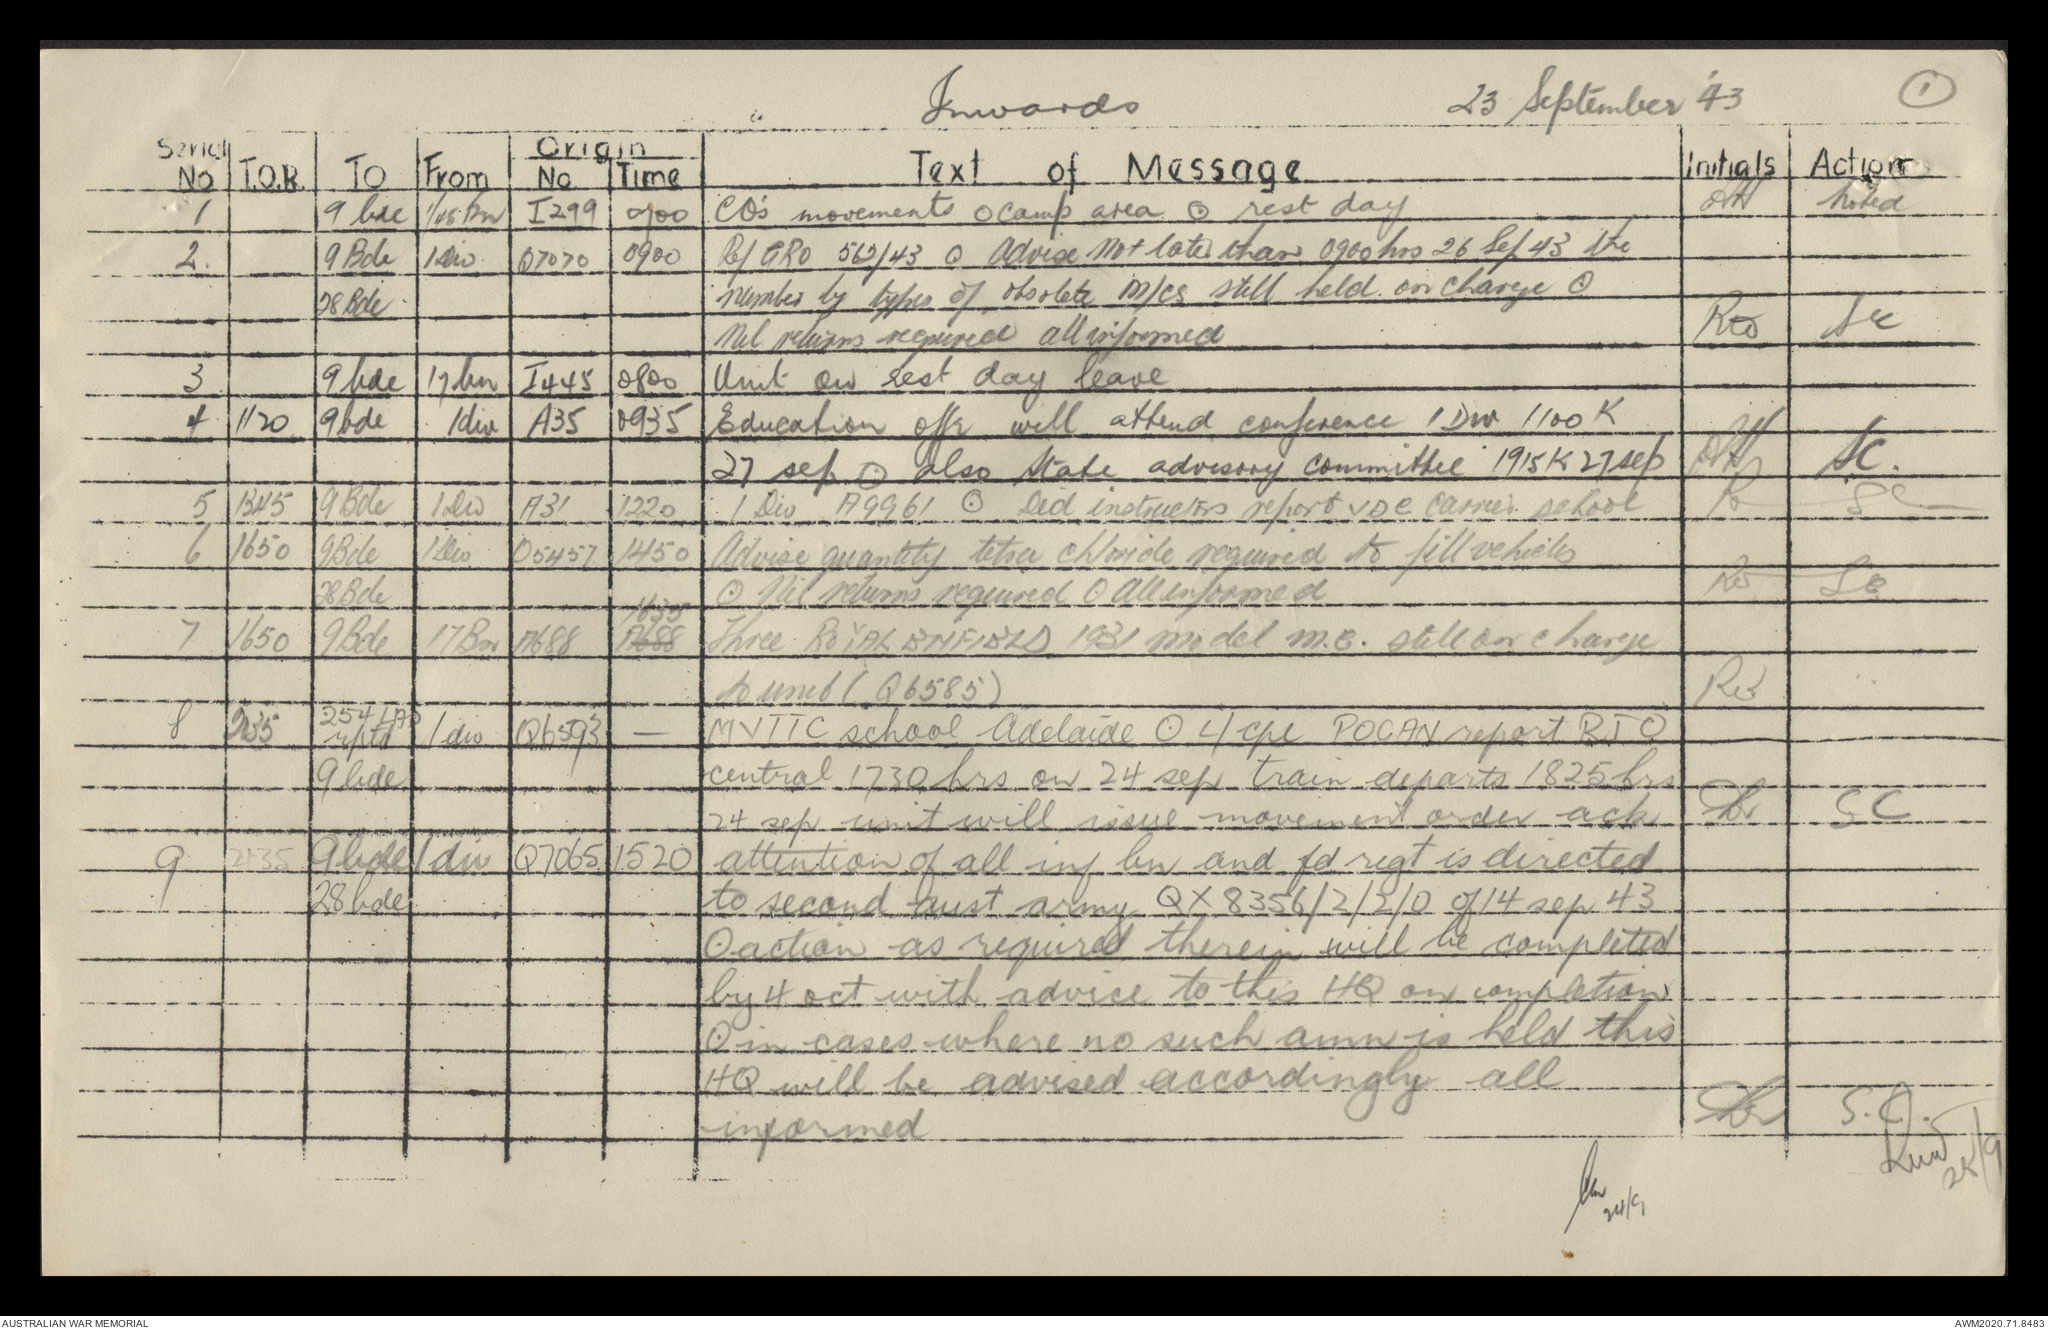 Inwards 23 September '43 1
Serial No T.O.R. TO From Origin No Time Text of Message Initials Action
1 9 bde I299 0900 CO's movements ⊙ camp area ⊙ rest day noted
2. 9 Bde 1 Div Q7070 0900 Ref GRO 562/43 ⊙ Advise not later than 0900 hrs 26 Sep 43 the
28 Bde number by types of obsolete m/cs still held on charge ⊙
Nil returns required all informed
3 9 bde 17 bn I445 0800 Unit on rest day leave
4 1120 9 bde 1 div A35 0935 Education offr will attend conference 1 Div 1100 K
27 sep ⊙ also State advisory committee 1915K 27 sep SC.
5 1345 9 Bde 1 Div A31 1220 1 Div A9961 ⊙ Did instructors report VDC carrier school SC
6 1650 9 Bde 1 Div O5457 1450 Advise quantity tetra chloride required to fill vehicles
28 Bde ⊙ Nil returns required ⊙ All informed SC
7 1650 9 Bde 17 Bn A688 1635 Three ROYAL ENFIELD 1931 model m.c. still on charge
to unit (Q6585)
8 2135 254 LAD 1 div Q6593 — MVTTC school Adelaide ⊙ L/cpl POGAN report RTO
rptd
9 bde central 1730 hrs on 24 sep train departs 1825 hrs
24 sep unit will issue movement order ack SC
9 2135 9 bde 1 div Q7065 1520 attention of all inf bn and fd regt is directed
28 bde to second aust army QX 8356/2/2/0 of 14 sep 43
⊙ action as required therein will be completed
by 4 oct with advice to this HQ on completion
⊙ in cases where no such amn is held this
HQ will be advised accordingly all
informed S.C.
24/9
25/9
AUSTRALIAN WAR MEMORIAL AWM2020.71.8483